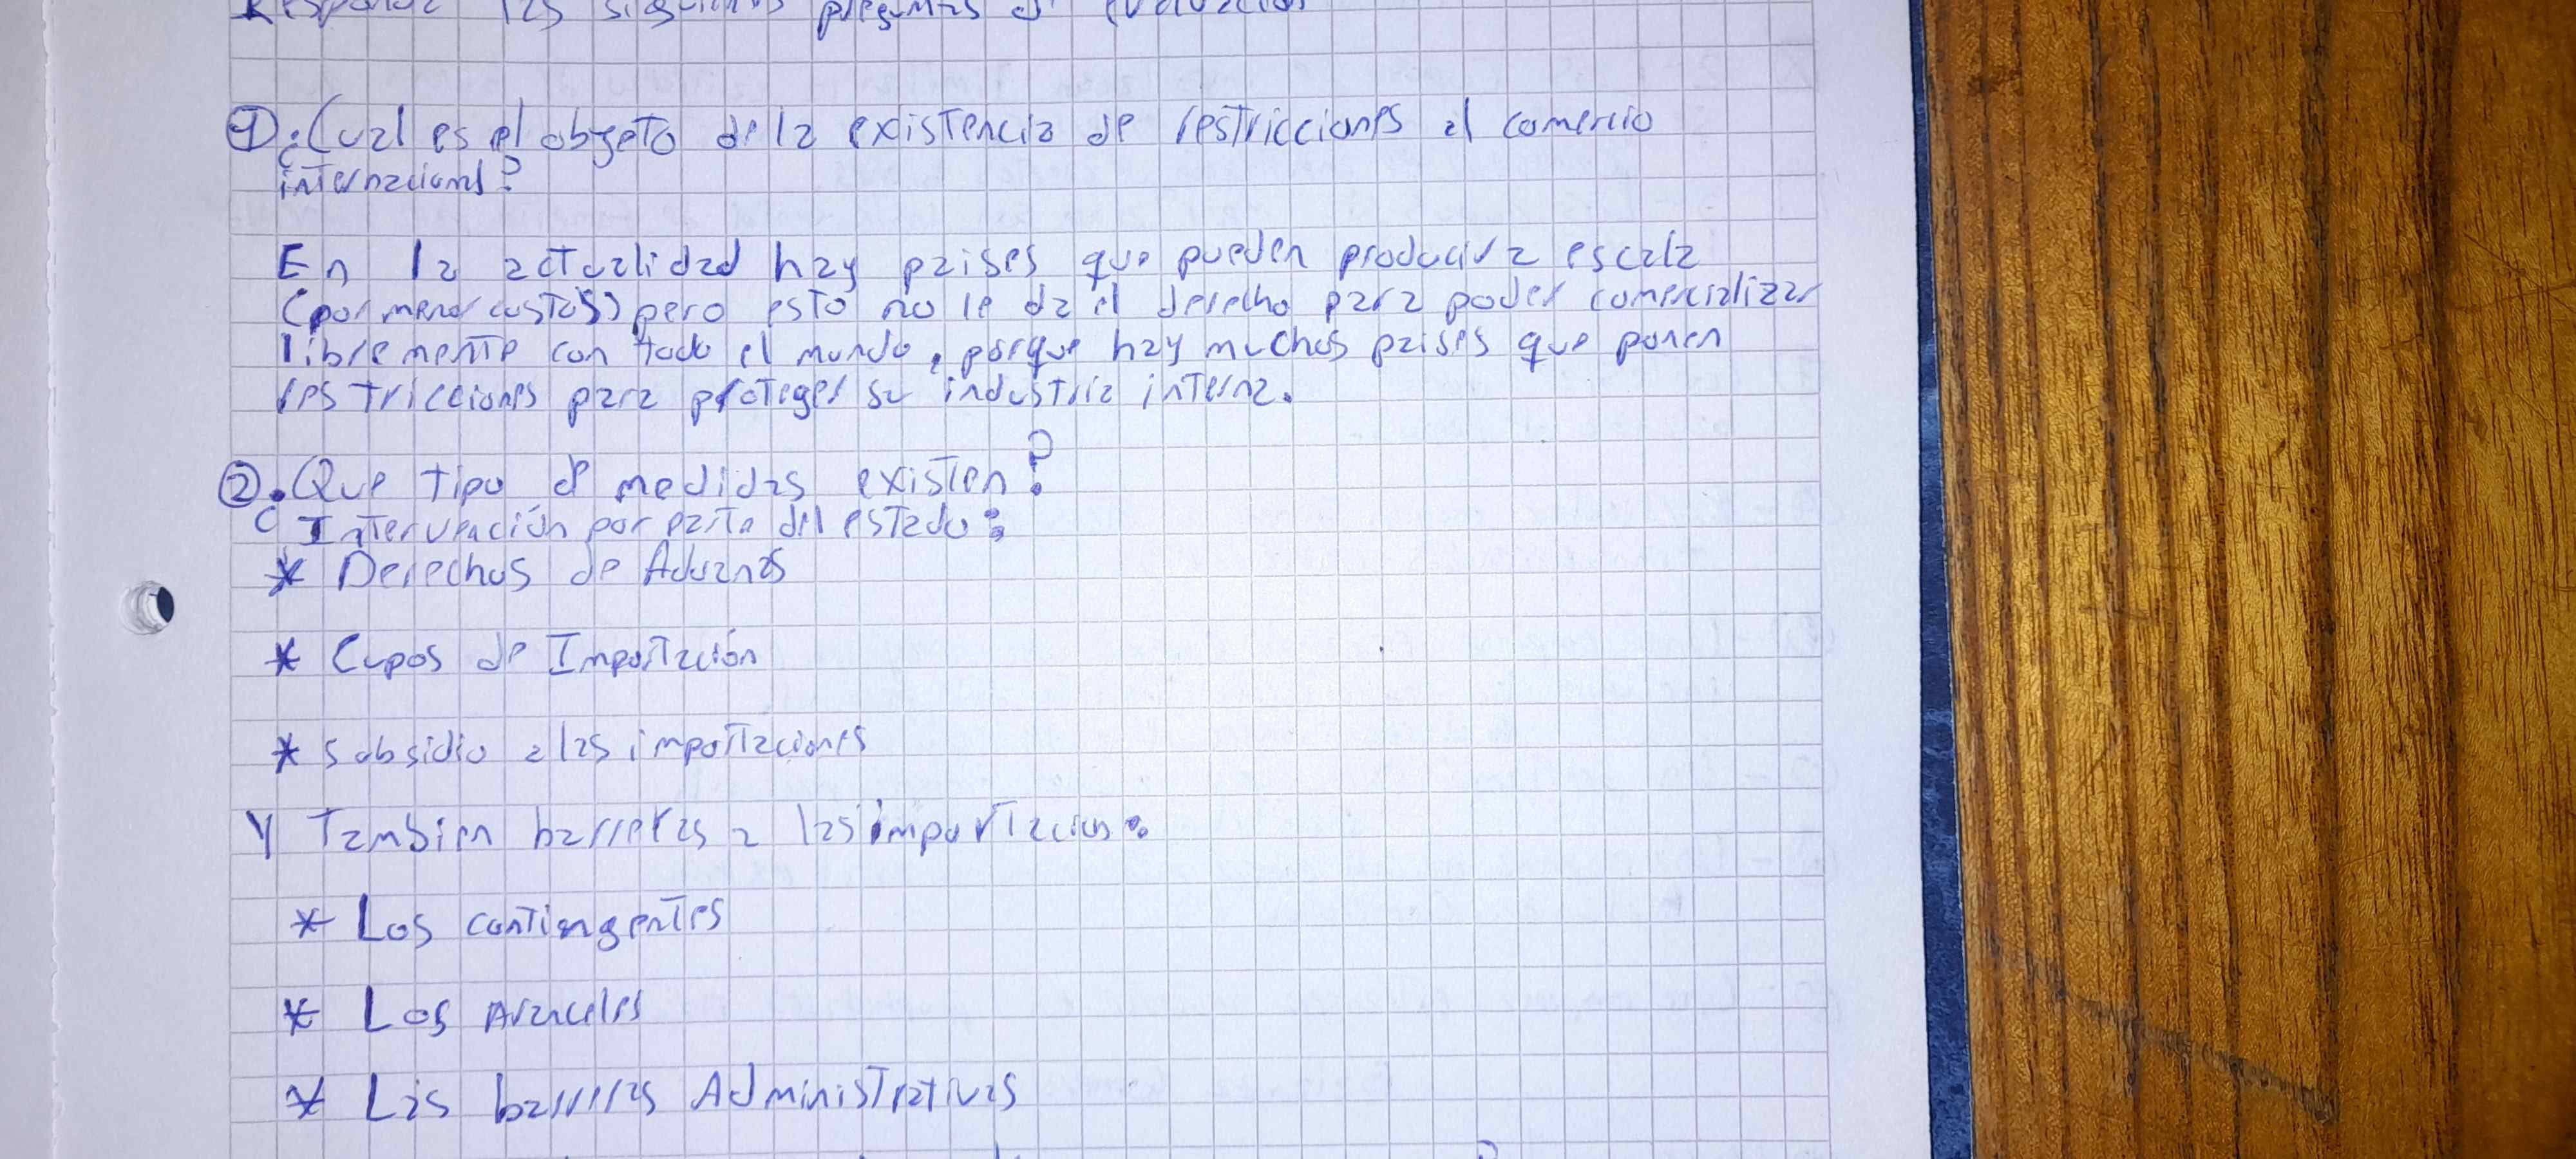 Responde las siguientes preguntas de evaluación
① ¿Cual es el objeto de la existencia de restricciones al comercio
internacional?
En la actualidad hay paises que pueden producir a escala
(por menor costos) pero esto no le da el derecho para poder comercializar
libremente con todo el mundo, porque hay muchos paises que ponen
restricciones para proteger su industria interna.
② ¿Que tipo de medidas existen?
Intervención por parte del estado:
* Derechos de Aduanas
* Cupos de Importación
* Subsidio a las importaciones
Y Tambien barreras a las importacion:
* Los contingentes
* Los Aranceles
* Las barreras Administrativas